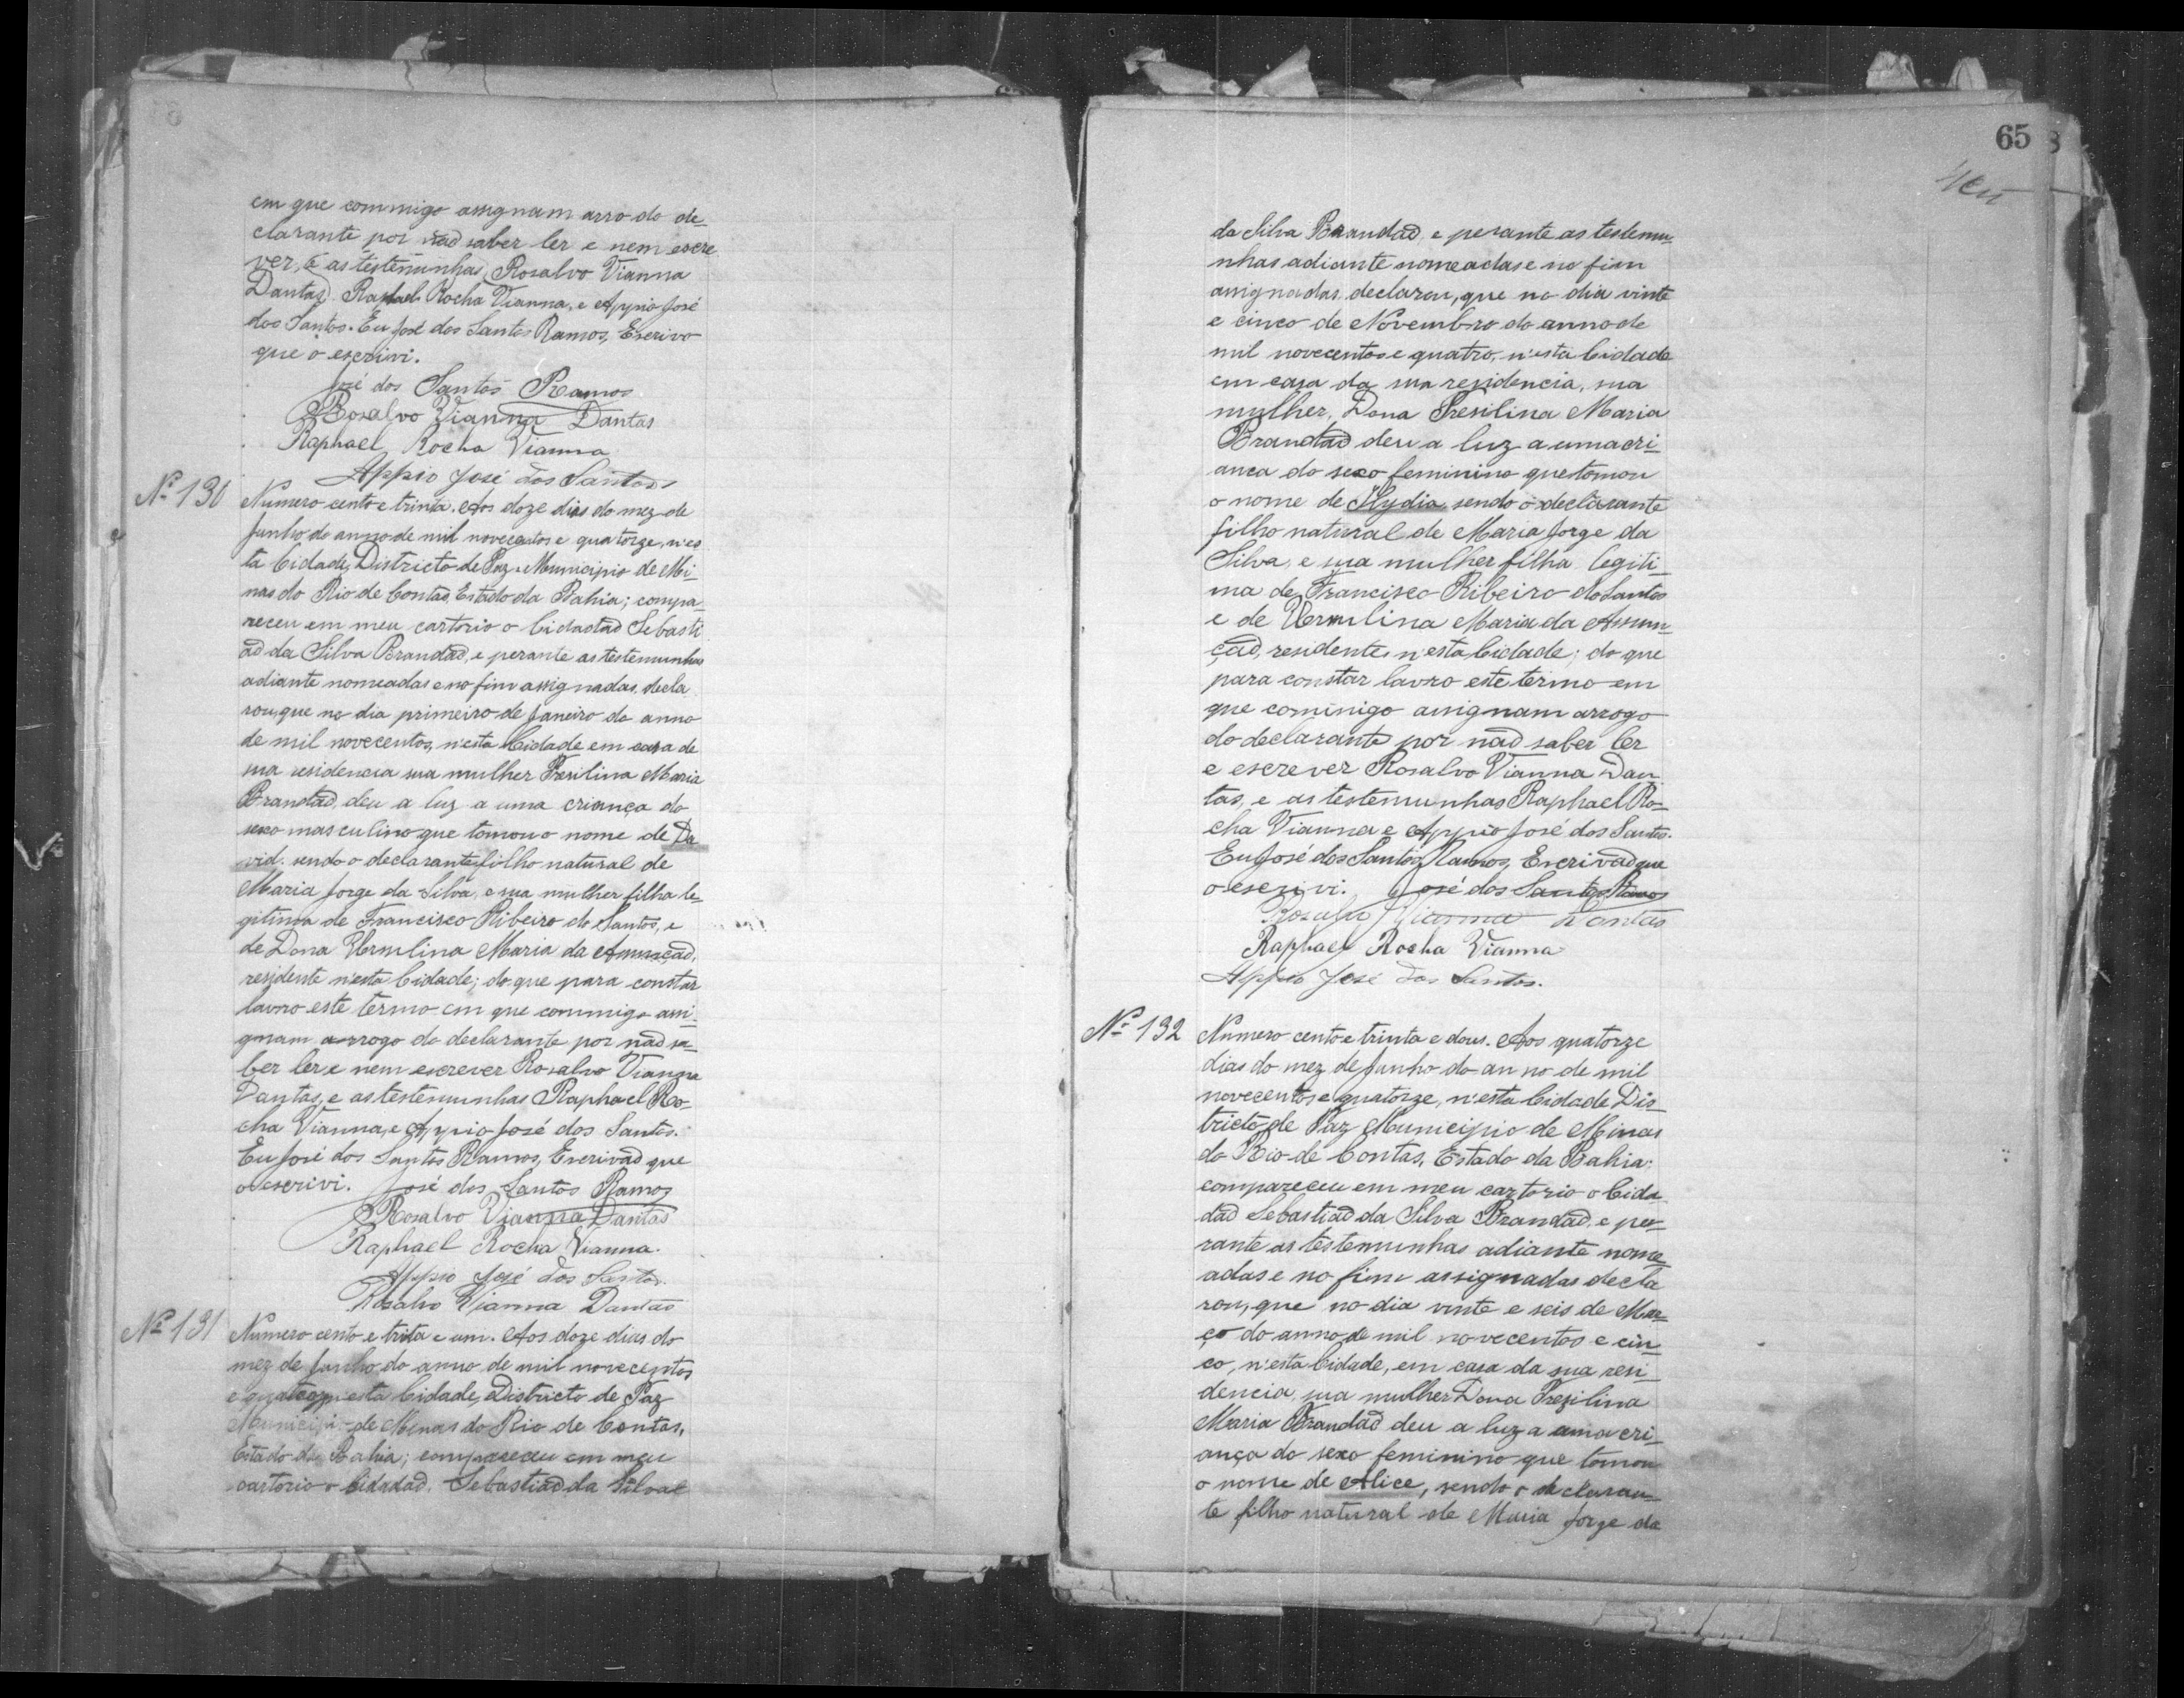 em que commigo assignam arro do de-
clarante por não saber ler e nem escre
ver, e as testeminhas, Rosalvo Vianna
Dantas. Raphael Rocha Vianna, e Appio José
dos Santos. Eu José dos Santos Ramos, Escrivo
que o escrivi.
José dos Santos Ramos
Rosalvo Vianna Dantas
Raphael Rocha Vianna
Appio José dos Santos
Nº 130
Numero cento e trinta. Aos doze dias do mez de
Junho do anno de mil novecentos e quatorze, n'es
ta Cidade, Districto de Paz e Municipio de Mi-
nas do Rio de Contas, Estado da Bahia; compa-
receu em meu cartorio o Cidadão Sebasti
ão da Silva Brandão, e perante as testemunhas
adiante nomeadas e no fim assignadas, decla
rou, que no dia primeiro de Janeiro do anno
de mil novecentos, n'esta Cidade em casa de
sua residencia sua mulher Maria
Brandão, deu a luz a uma criança do
sexo masculino que tomou o nome de Da
vid. sendo o declarante filho natural de
Maria Jorge da Silva, e sua mulher filha le-
gitima de Francisco Ribeiro do Santos, e
de Dona Maria da
residente n'esta Cidade; do que para constar
lavro este termo em que commigo assi-
gnam arrogo do declarante por não sa-
ber ler e nem escrever Rosalvo Vianna
Dantas, e as testemunhas Raphael Ro-
cha Vianna, e Appio José dos Santos.
Eu José dos Santos Ramos, Escrivão que
o escrivi. José dos Santos Ramos
Rosalvo Vianna Dantas
Raphael Rocha Vianna.
Appio José dos Santos.
Rosalvo Vianna Dantas
Nº 131
Numero cento e trita e um. Aos doze dias do
mez de Junho do anno de mil novecentos
e n'esta Cidade, Districto de Paz
Municipio de Minas do Rio de Contas,
Estado da Bahia; compareceu em meu
cartorio o Cidadão. Sebastião da Silva
65
da Silva Brandão, e perante as testemu-
nhas adiante nomeadas e no fim
assignadas, declarou, que no dia vinte
e cinco de Novembro do anno de
mil novecentos e quatro, n'esta Cidade
em casa da sua residencia, sua
mulher, Dona Maria
Brandão deu a luz a uma cri-
anca do sexo feminino que tomou
o nome de sendo o declarante
filho natural de Maria Jorge da
Silva, e sua mulher filha legiti-
ma de Francisco Ribeiro do Santos
e de Maria da Assum-
ção, residente n'esta Cidade; do que
para constar lavro este termo em
que commigo assignam arrogo
do declarante por não saber ler
e escrever Rosalvo Vianna Dan
tas, e as testemunhas Raphael Ro-
cha Vianna e Appio José dos Santos.
Eu José dos Santos Ramos, Escrivão que
o escrivi. José dos Santos Ramos
Rosalvo Vianna Dantas
Raphael Rocha Vianna
Appio José dos Santos.
Nº 132
Numero cento e trinta e dous. Aos quatorze
dias do mez de Junho do anno de mil
novecentos e quatorze, n'esta Cidade Dis-
tricto de Paz Municipio de Minas
do Rio de Contas, Estado da Bahia:
compareceu em meu cartorio o Cida
dão Sebastião da Silva Brandão, e pe-
rante as testemunhas adiante nome
adas e no fim assignadas decla
rou, que no dia vinte e seis de Mar-
ço do anno de mil novecentos e cin-
co, n'esta Cidade, em casa da sua resi-
dencia, sua mulher Dona
Maria Brandão deu a luz a uma cri-
ança do sexo feminino que tomou
o nome de Alice, sendo o declaran-
te filho natural de Maria Jorge da